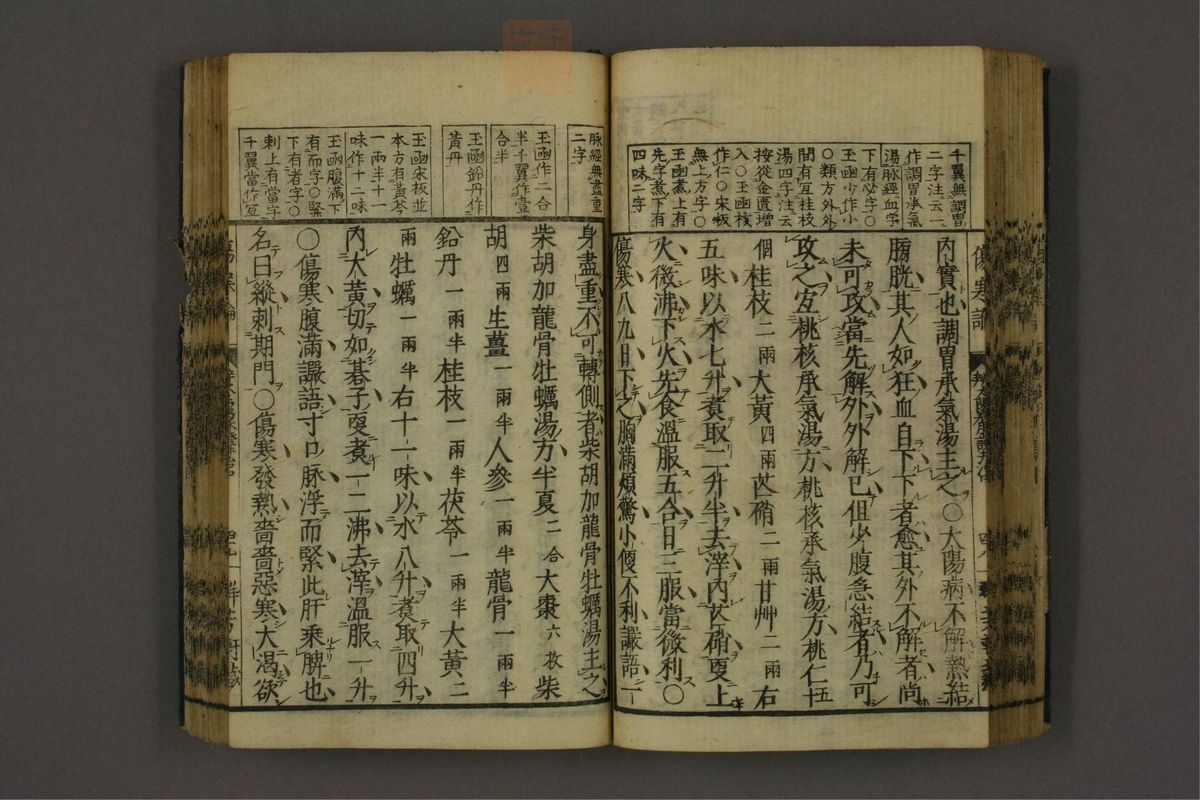 千翼無調胃
二字注云一
作調胃承氣
湯脉經血字
下有必字〇
玉函少作小
〇類方外外
間有互桂枝
湯四字注云
按從金匱增
入〇玉函核
作仁〇宋板
無上方字〇
玉函煮上有
先字煮下有
四味二字
傷寒論
內實也調胃承氣湯主之〇太陽病不解熱結
膀胱其人如狂血自下下者愈其外不解者尚
未可攻當先解外外解已但少腹急結者乃可
攻之宜桃核承氣湯方桃核承氣湯方桃仁五十
個桂枝二兩大黃四兩芒硝二兩甘艸二兩右
五味以水七升煮取二升半去滓內芒硝更上
火微沸下火先食溫服五合日三服當微利〇
傷寒八九日下之胸滿煩驚小便不利讝語一
脉經無盡重
二字
玉函作二合
半千翼作壹
合半
玉函鉛丹作
黃丹
玉函宋板並
本方有黃芩
一兩半十一
味作十二味
玉函腹滿下
有而字〇緊
下有者字〇
刺上有當字
千翼當作亙
身盡重不可轉側者柴胡加龍骨牡蠣湯主之
柴胡加龍骨牡蠣湯方半夏二合大棗六枚柴
胡四兩生薑一兩半人參一兩半龍骨一兩半
鉛丹一兩半桂枝一兩半茯苓一兩半大黃二
兩牡蠣一兩半右十一味以水八升煮取四升
內大黃切如碁子更煮一二沸去滓溫服一升
〇傷寒腹滿讝語寸口脉浮而緊此肝乘脾也
名曰縱刺期門〇傷寒發熱嗇嗇惡寒大渴欲